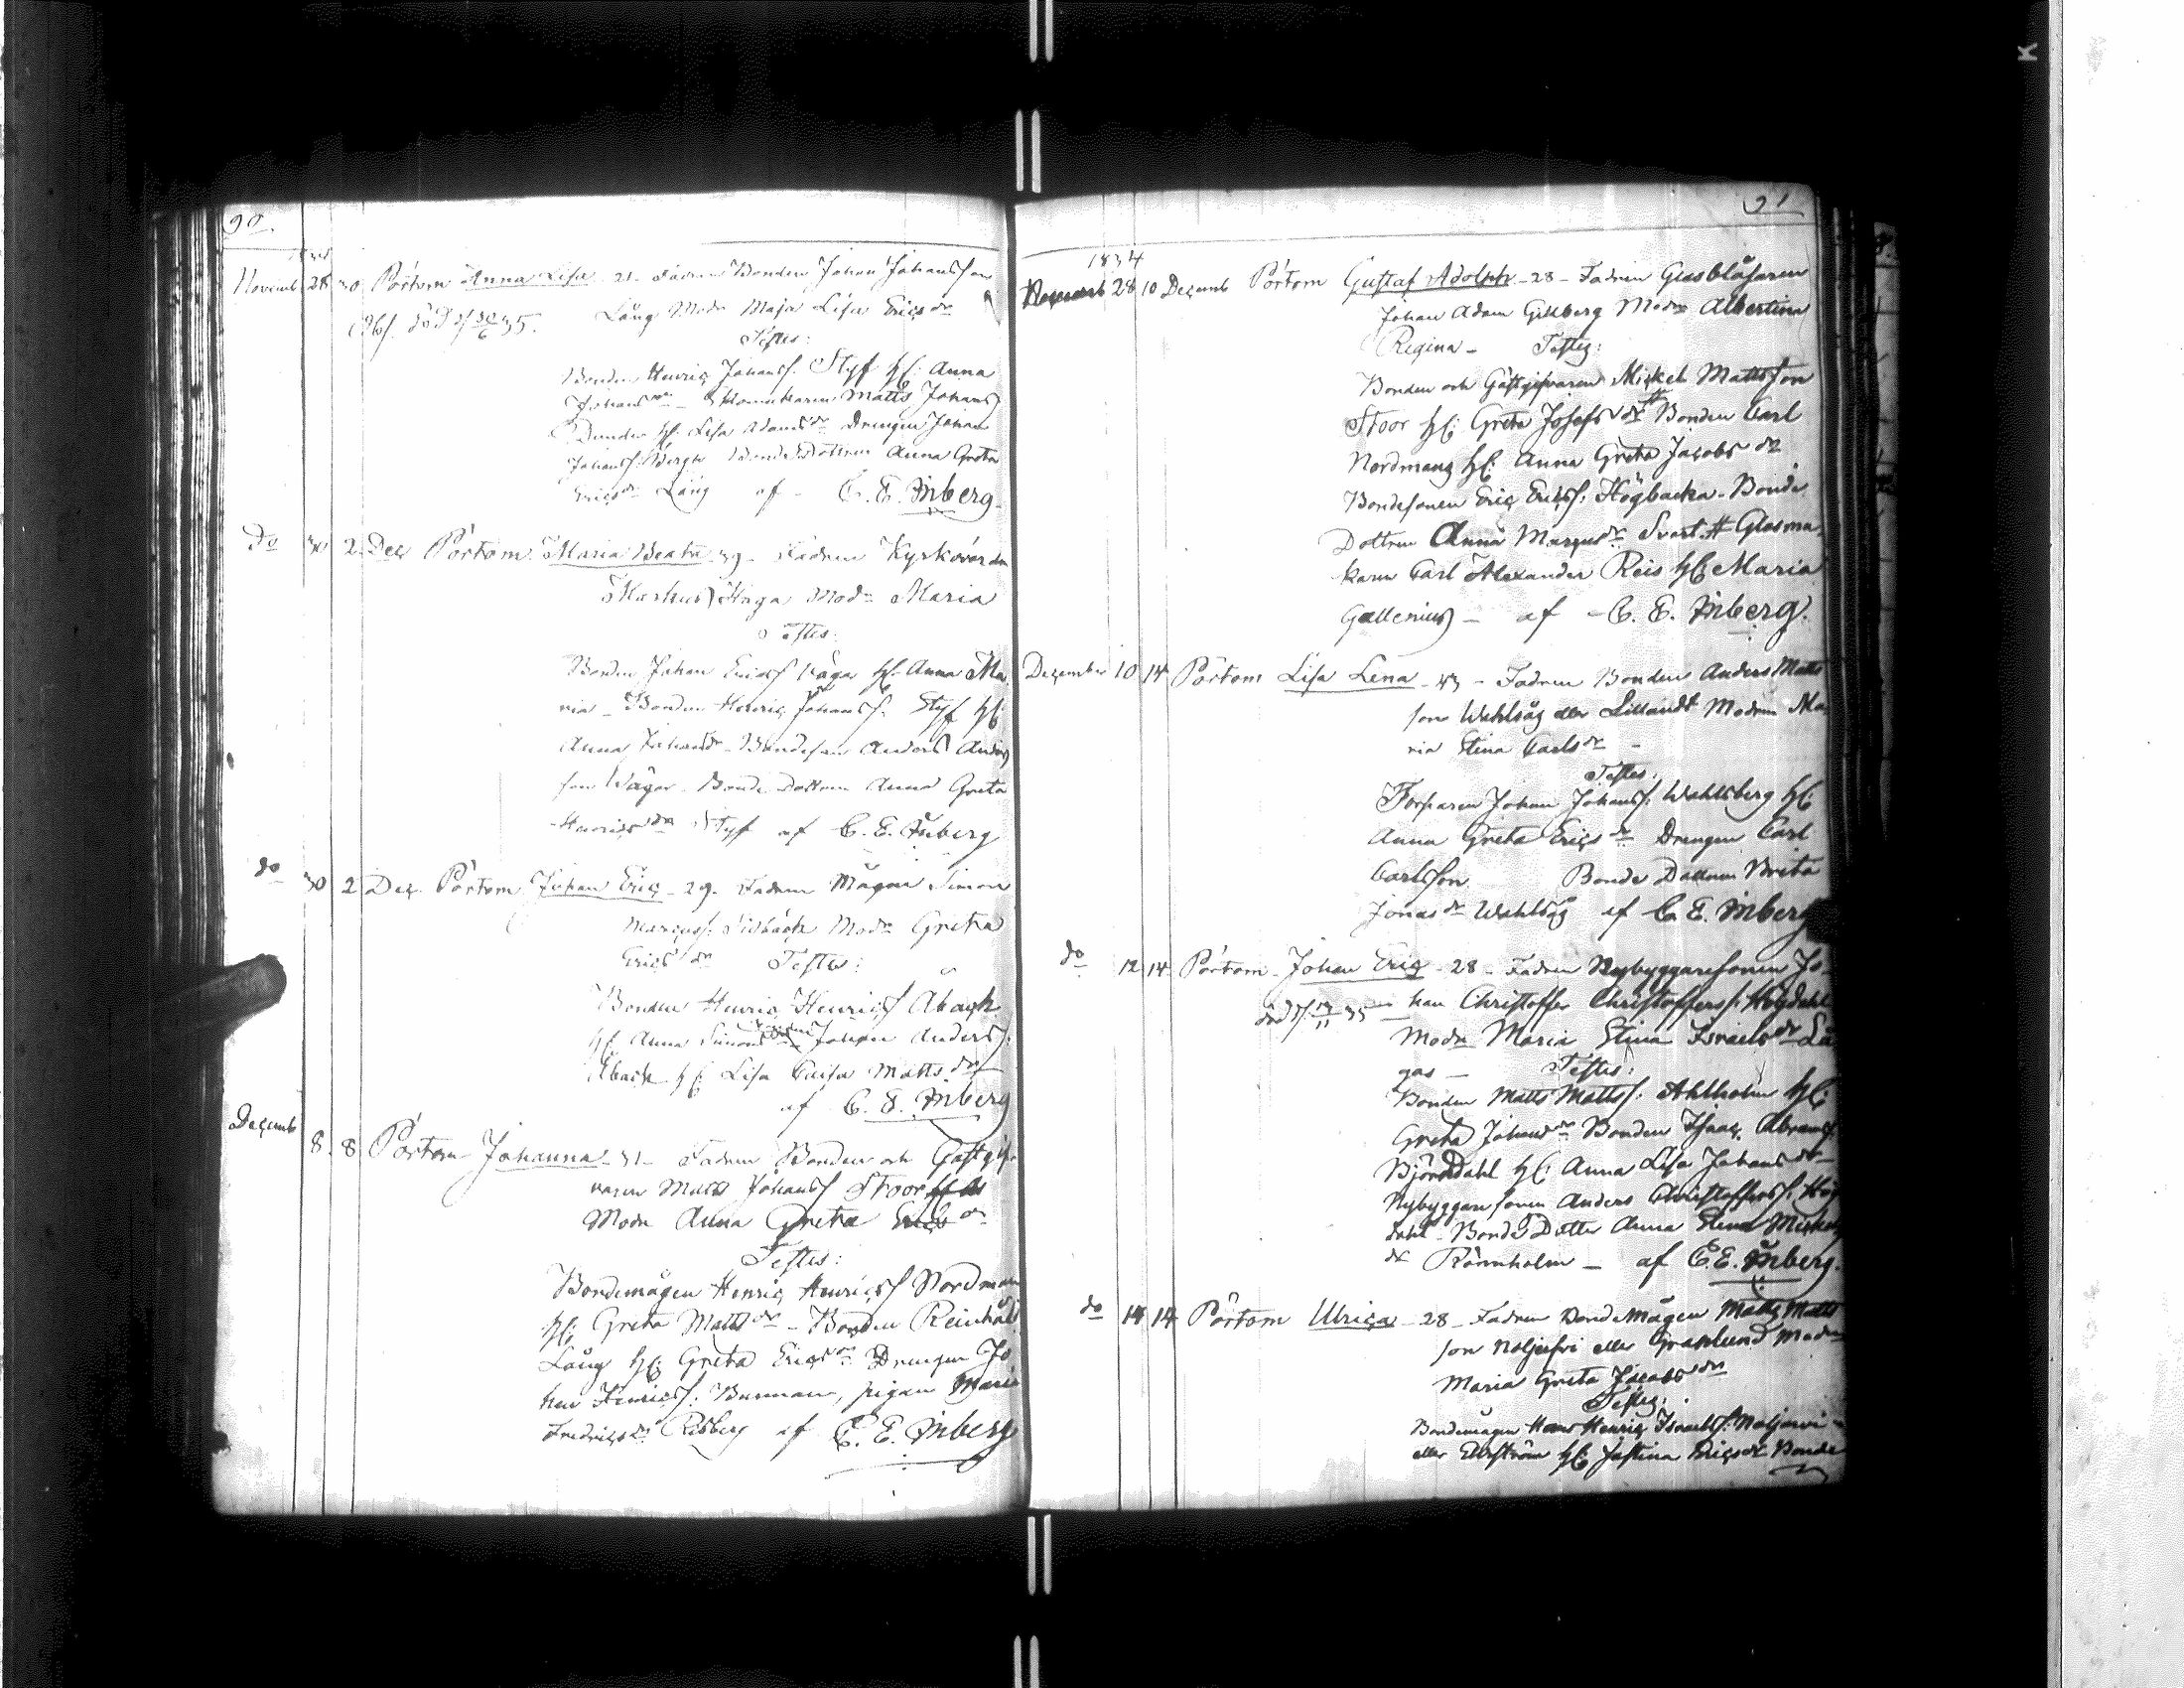 90.
1834
Novemb 28 30 Pörtom Anna Lisa 21. Fadren Bonden Johan Johansson
Lång Modr Maja Lisa Ericsdr
Testes:
Bonden Henric Johanss. Styf H: Anna
Johansdr Matts Johans
H: Lisa Adamsdr Drengen Johan
Johanss. Berg Bonde Dottren Anna Greta
Ericsdr Lång af - C. E. Inberg.
do 30 2 Dec Pörtom Maria Beata 39 - Fadren Kyrkovärden
Markus Modr Maria
Testes:
Bonden Johan Ericss H: Anna Ma
ria - Bonden Henric Johanss. Styf H:
Anna Johansdr - Bondeson Anders Anders
son Wägar Bonde Dottren Anna Greta
Henricsdr Styf af C. E. Inberg
do 30 2 Dec. Pörtom Johan Eric - 29. Fadren Mågen Simon
Marcuss. Modr Greta
Ericsdr Testes:
Bonden Henric Henricss Åback
H: Anna Simonsdr Johan Anderss.
Åback H: Lisa Caisa Mattsdr
af C. E. Inberg
Decemb
8. 8 Pörtom Johanna - 31 - Fadren Bonden och Gästgif-
varen Matts Johanss Stoor
Modr Anna Greta Ericsdr
Testes:
Bondemågen Henric Henricss Nordman
H: Greta Mattsdr - Bonden Reinhold
Lång H: Greta Ericsdr Drengen Jo
han Henricss. Burman, pigan Maria
Fredricsdr Risberg af C. E. Inberg
91
1834
28 10 Decemb Pörtom Gustaf Adolph - 28 - Fadren Glasblåsaren
Johan Adam Gillberg Modr Albertina
Regina - Testes:
Bonden och Gästgifvaren Mickel Mattsson
Stoor H: Greta Josefsdr # Bonden Carl
Nordmans H: Anna Greta Jacobsdr
Bondesonen Eric Ericss. Högbacka - Bonde
Dottren Anna Marcusdr Svart. # Glasma
karen Carl Alexander Reis H: Maria
Gallenius - af - C. E. Inberg.
December 10 14 Pörtom Lisa Lena - 43 - Fadren Bonden Anders Matts
son Wahlsåg eller Lillandt Modren Ma
ria Stina Carlsdr -
Testes:
Torparen Johan Johanss. Wahlsberg H:
Anna Greta Ericsdr Drengen Carl
Carlsson Bonde Dottren Brita
Jonasdr Wahlsåg af C. E. Inberg
do 12 14 Pörtom - Johan Eric - 28 - Fadren Nybyggaresonen Jo-
död d. 13/11 35 han Christoffer Christofferss. Högdahl
Modr Maria Stina Israelsdr Lå
gas - Testes:
Bonden Matts Mattss. Ahlholm H:
Greta Johansdr Bonden Isaac Abramss
Björkdahl H: Anna Lisa Johansdr -
Nybyggaresonen Anders Christofferss. Hög
dahl - Bonde Dotter Anna Stina Mickels
dr Rönnholm - af C. E. Inberg.
do 14 14 Pörtom Ulrica - 28 - Fadren Bondemågen Matts Matts
son eller Granlund Modren
Maria Greta Jacobsdr
Testes:
Bondemågen Henric Israelss.
eller H: Justina Ericsdr Bonde